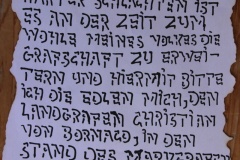 HARTER SCHLACHTEN IST
ES AN DER ZEIT ZUM
WOHLE MEINES VOLKES DIE
GRAFSCHAFT ZU ERWEI-
TERN UND HIERMIT BITTE
ICH DIE EDLEN MICH, DEN
LANDGRAFEN CHRISTIAN
VON BORNACO, IN DEM
STAND DES MARKGRAFEN